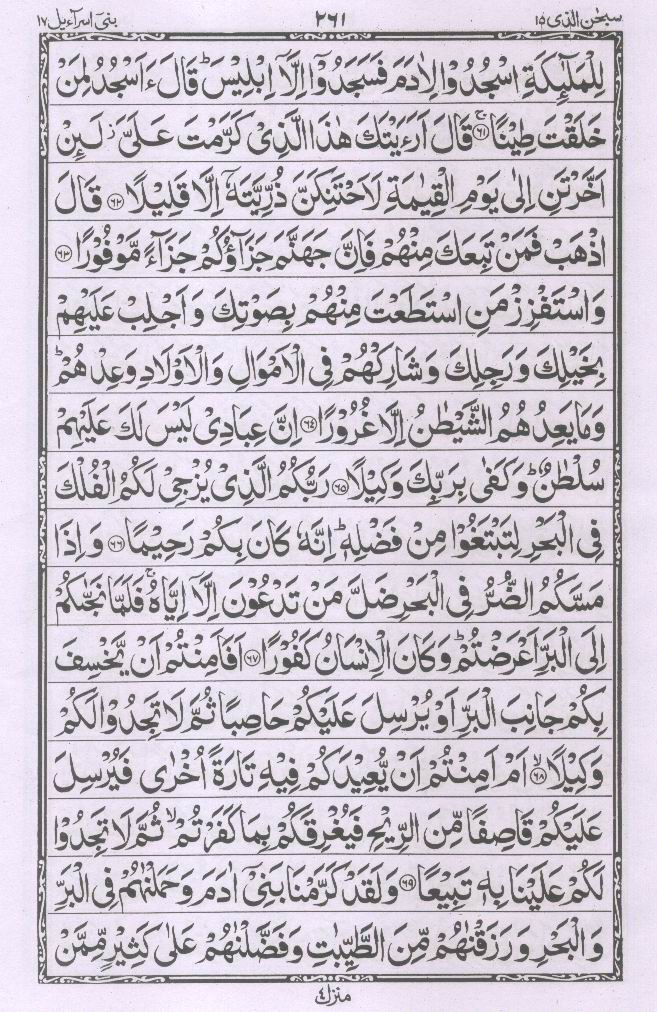 سبحٰن الذی ١٥
٢٦١
بنیٓ اسرآءیل ١٧
لِلْمَلٰٓئِكَةِ اسْجُدُوْا لِاٰدَمَ فَسَجَدُوْۤا اِلَّاۤ اِبْلِيْسَ ؕ قَالَ ءَاَسْجُدُ لِمَنْ
خَلَقْتَ طِيْنًا ۚ﴿٦١﴾ قَالَ اَرَءَيْتَكَ هٰذَا الَّذِيْ كَرَّمْتَ عَلَيَّ ؗ لَئِنْ
اَخَّرْتَنِ اِلٰى يَوْمِ الْقِيٰمَةِ لَاَحْتَنِكَنَّ ذُرِّيَّتَهٗۤ اِلَّا قَلِيْلًا ﴿٦٢﴾ قَالَ
اذْهَبْ فَمَنْ تَبِعَكَ مِنْهُمْ فَاِنَّ جَهَنَّمَ جَزَآؤُكُمْ جَزَآءً مَّوْفُوْرًا ﴿٦٣﴾
وَاسْتَفْزِزْ مَنِ اسْتَطَعْتَ مِنْهُمْ بِصَوْتِكَ وَاَجْلِبْ عَلَيْهِمْ
بِخَيْلِكَ وَرَجِلِكَ وَشَارِكْهُمْ فِي الْاَمْوَالِ وَالْاَوْلَادِ وَعِدْهُمْ ؕ
وَمَا يَعِدُهُمُ الشَّيْطٰنُ اِلَّا غُرُوْرًا ﴿٦٤﴾ اِنَّ عِبَادِيْ لَيْسَ لَكَ عَلَيْهِمْ
سُلْطٰنٌ ؕ وَكَفٰى بِرَبِّكَ وَكِيْلًا ﴿٦٥﴾ رَبُّكُمُ الَّذِيْ يُزْجِيْ لَكُمُ الْفُلْكَ
فِي الْبَحْرِ لِتَبْتَغُوْا مِنْ فَضْلِهٖ ؕ اِنَّهٗ كَانَ بِكُمْ رَحِيْمًا ﴿٦٦﴾ وَاِذَا
مَسَّكُمُ الضُّرُّ فِي الْبَحْرِ ضَلَّ مَنْ تَدْعُوْنَ اِلَّاۤ اِيَّاهُ ۚ فَلَمَّا نَجّٰىكُمْ
اِلَى الْبَرِّ اَعْرَضْتُمْ ؕ وَكَانَ الْاِنْسَانُ كَفُوْرًا ﴿٦٧﴾ اَفَاَمِنْتُمْ اَنْ يَّخْسِفَ
بِكُمْ جَانِبَ الْبَرِّ اَوْ يُرْسِلَ عَلَيْكُمْ حَاصِبًا ثُمَّ لَا تَجِدُوْا لَكُمْ
وَكِيْلًا ۙ﴿٦٨﴾ اَمْ اَمِنْتُمْ اَنْ يُّعِيْدَكُمْ فِيْهِ تَارَةً اُخْرٰى فَيُرْسِلَ
عَلَيْكُمْ قَاصِفًا مِّنَ الرِّيْحِ فَيُغْرِقَكُمْ بِمَا كَفَرْتُمْ ۙ ثُمَّ لَا تَجِدُوْا
لَكُمْ عَلَيْنَا بِهٖ تَبِيْعًا ﴿٦٩﴾ وَلَقَدْ كَرَّمْنَا بَنِيْۤ اٰدَمَ وَحَمَلْنٰهُمْ فِي الْبَرِّ
وَالْبَحْرِ وَرَزَقْنٰهُمْ مِّنَ الطَّيِّبٰتِ وَفَضَّلْنٰهُمْ عَلٰى كَثِيْرٍ مِّمَّنْ
منزل ٤